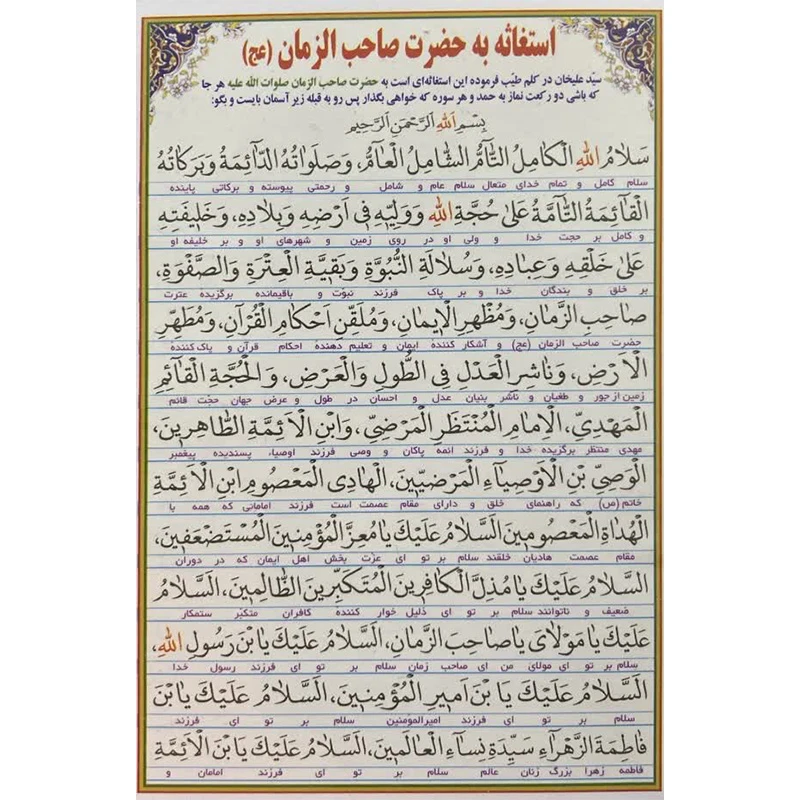 استغاثه به حضرت صاحب الزمان (عج)
سیّد علیخان در کلم طیّب فرموده این استغاثه‌ای است به حضرت صاحب الزمان صلوات الله علیه هر جا
که باشی دو رکعت نماز به حمد و هر سوره که خواهی بگذار پس رو به قبله زیر آسمان بایست و بگو:
بِسْمِ اللهِ الرَّحْمٰنِ الرَّحِیمِ
سَلَامُ اللهِ الْكَامِلُ التَّآمُّ الشَّامِلُ الْعَآمُّ، وَصَلَوَاتُهُ الدَّآئِمَةُ وَبَرَكَاتُهُ
سلام کامل و تمام خدای متعال سلام عام و شامل و رحمتی پیوسته و برکاتی پاینده
الْقَآئِمَةُ التَّآمَّةُ عَلىٰ حُجَّةِ اللهِ وَوَلِيِّهِ فِي اَرْضِهِ وَبِلَادِهِ، وَخَلِيفَتِهِ
و کامل بر حجت خدا و ولی او در روی زمین و شهرهای او و بر خلیفه او
عَلىٰ خَلْقِهِ وَعِبَادِهِ، وَسُلَالَةِ النُّبُوَّةِ وَبَقِيَّةِ الْعِتْرَةِ وَالصَّفْوَةِ،
بر خلق و بندگان خدا و بر پاک فرزند نبوّت و باقیمانده برگزیده عترت
صَاحِبِ الزَّمَانِ، وَمُظْهِرِ الْاِيمَانِ، وَمُلَقِّنِ اَحْكَامِ الْقُرْآنِ، وَمُطَهِّرِ
حضرت صاحب الزمان (عج) و آشکار کنندۀ ایمان و تعلیم دهندۀ احکام قرآن و پاک کننده
الْاَرْضِ، وَنَاشِرِ الْعَدْلِ فِي الطُّولِ وَالْعَرْضِ، وَالْحُجَّةِ الْقَآئِمِ
زمین از جور و طغیان و ناشر بنیان عدل و احسان در طول و عرض جهان حجّت قائم
الْمَهْدِيِّ، الْاِمَامِ الْمُنْتَظَرِ الْمَرْضِيِّ، وَابْنِ الْاَئِمَّةِ الطَّاهِرِينَ،
مهدی منتظر برگزیده خدا و فرزند ائمه پاکان و وصی فرزند اوصیاء پسندیده پیغمبر
الْوَصِيِّ بْنِ الْاَوْصِيَآءِ الْمَرْضِيِّينَ، الْهَادِي الْمَعْصُومِ ابْنِ الْاَئِمَّةِ
خاتم (ص) که راهنمای خلق و دارای مقام عصمت است فرزند امامانی که همه با
الْهُدَاةِ الْمَعْصُومِينَ اَلسَّلَامُ عَلَيْكَ يَا مُعِزَّ الْمُؤْمِنِينَ الْمُسْتَضْعَفِينَ،
مقام عصمت هادیان خلقند سلام بر تو ای عزّت بخش اهل ایمان که در دوران
اَلسَّلَامُ عَلَيْكَ يَا مُذِلَّ الْكَافِرِينَ الْمُتَكَبِّرِينَ الظَّالِمِينَ، اَلسَّلَامُ
ضعیف و ناتوانند سلام بر تو ای ذلیل خوار کننده کافران متکبّر ستمکار
عَلَيْكَ يَا مَوْلَايَ يَا صَاحِبَ الزَّمَانِ، اَلسَّلَامُ عَلَيْكَ يَا بْنَ رَسُولِ اللهِ،
سلام بر تو ای مولای من ای صاحب زمان سلام بر تو ای فرزند رسول خدا
اَلسَّلَامُ عَلَيْكَ يَا بْنَ اَمِيرِ الْمُؤْمِنِينَ، اَلسَّلَامُ عَلَيْكَ يَا بْنَ
سلام بر تو ای فرزند امیرالمؤمنین سلام بر تو ای فرزند
فَاطِمَةَ الزَّهْرَآءِ سَيِّدَةِ نِسَآءِ الْعَالَمِينَ، اَلسَّلَامُ عَلَيْكَ يَا بْنَ الْاَئِمَّةِ
فاطمه زهرا بزرگ زنان عالم سلام بر تو ای فرزند امامان و